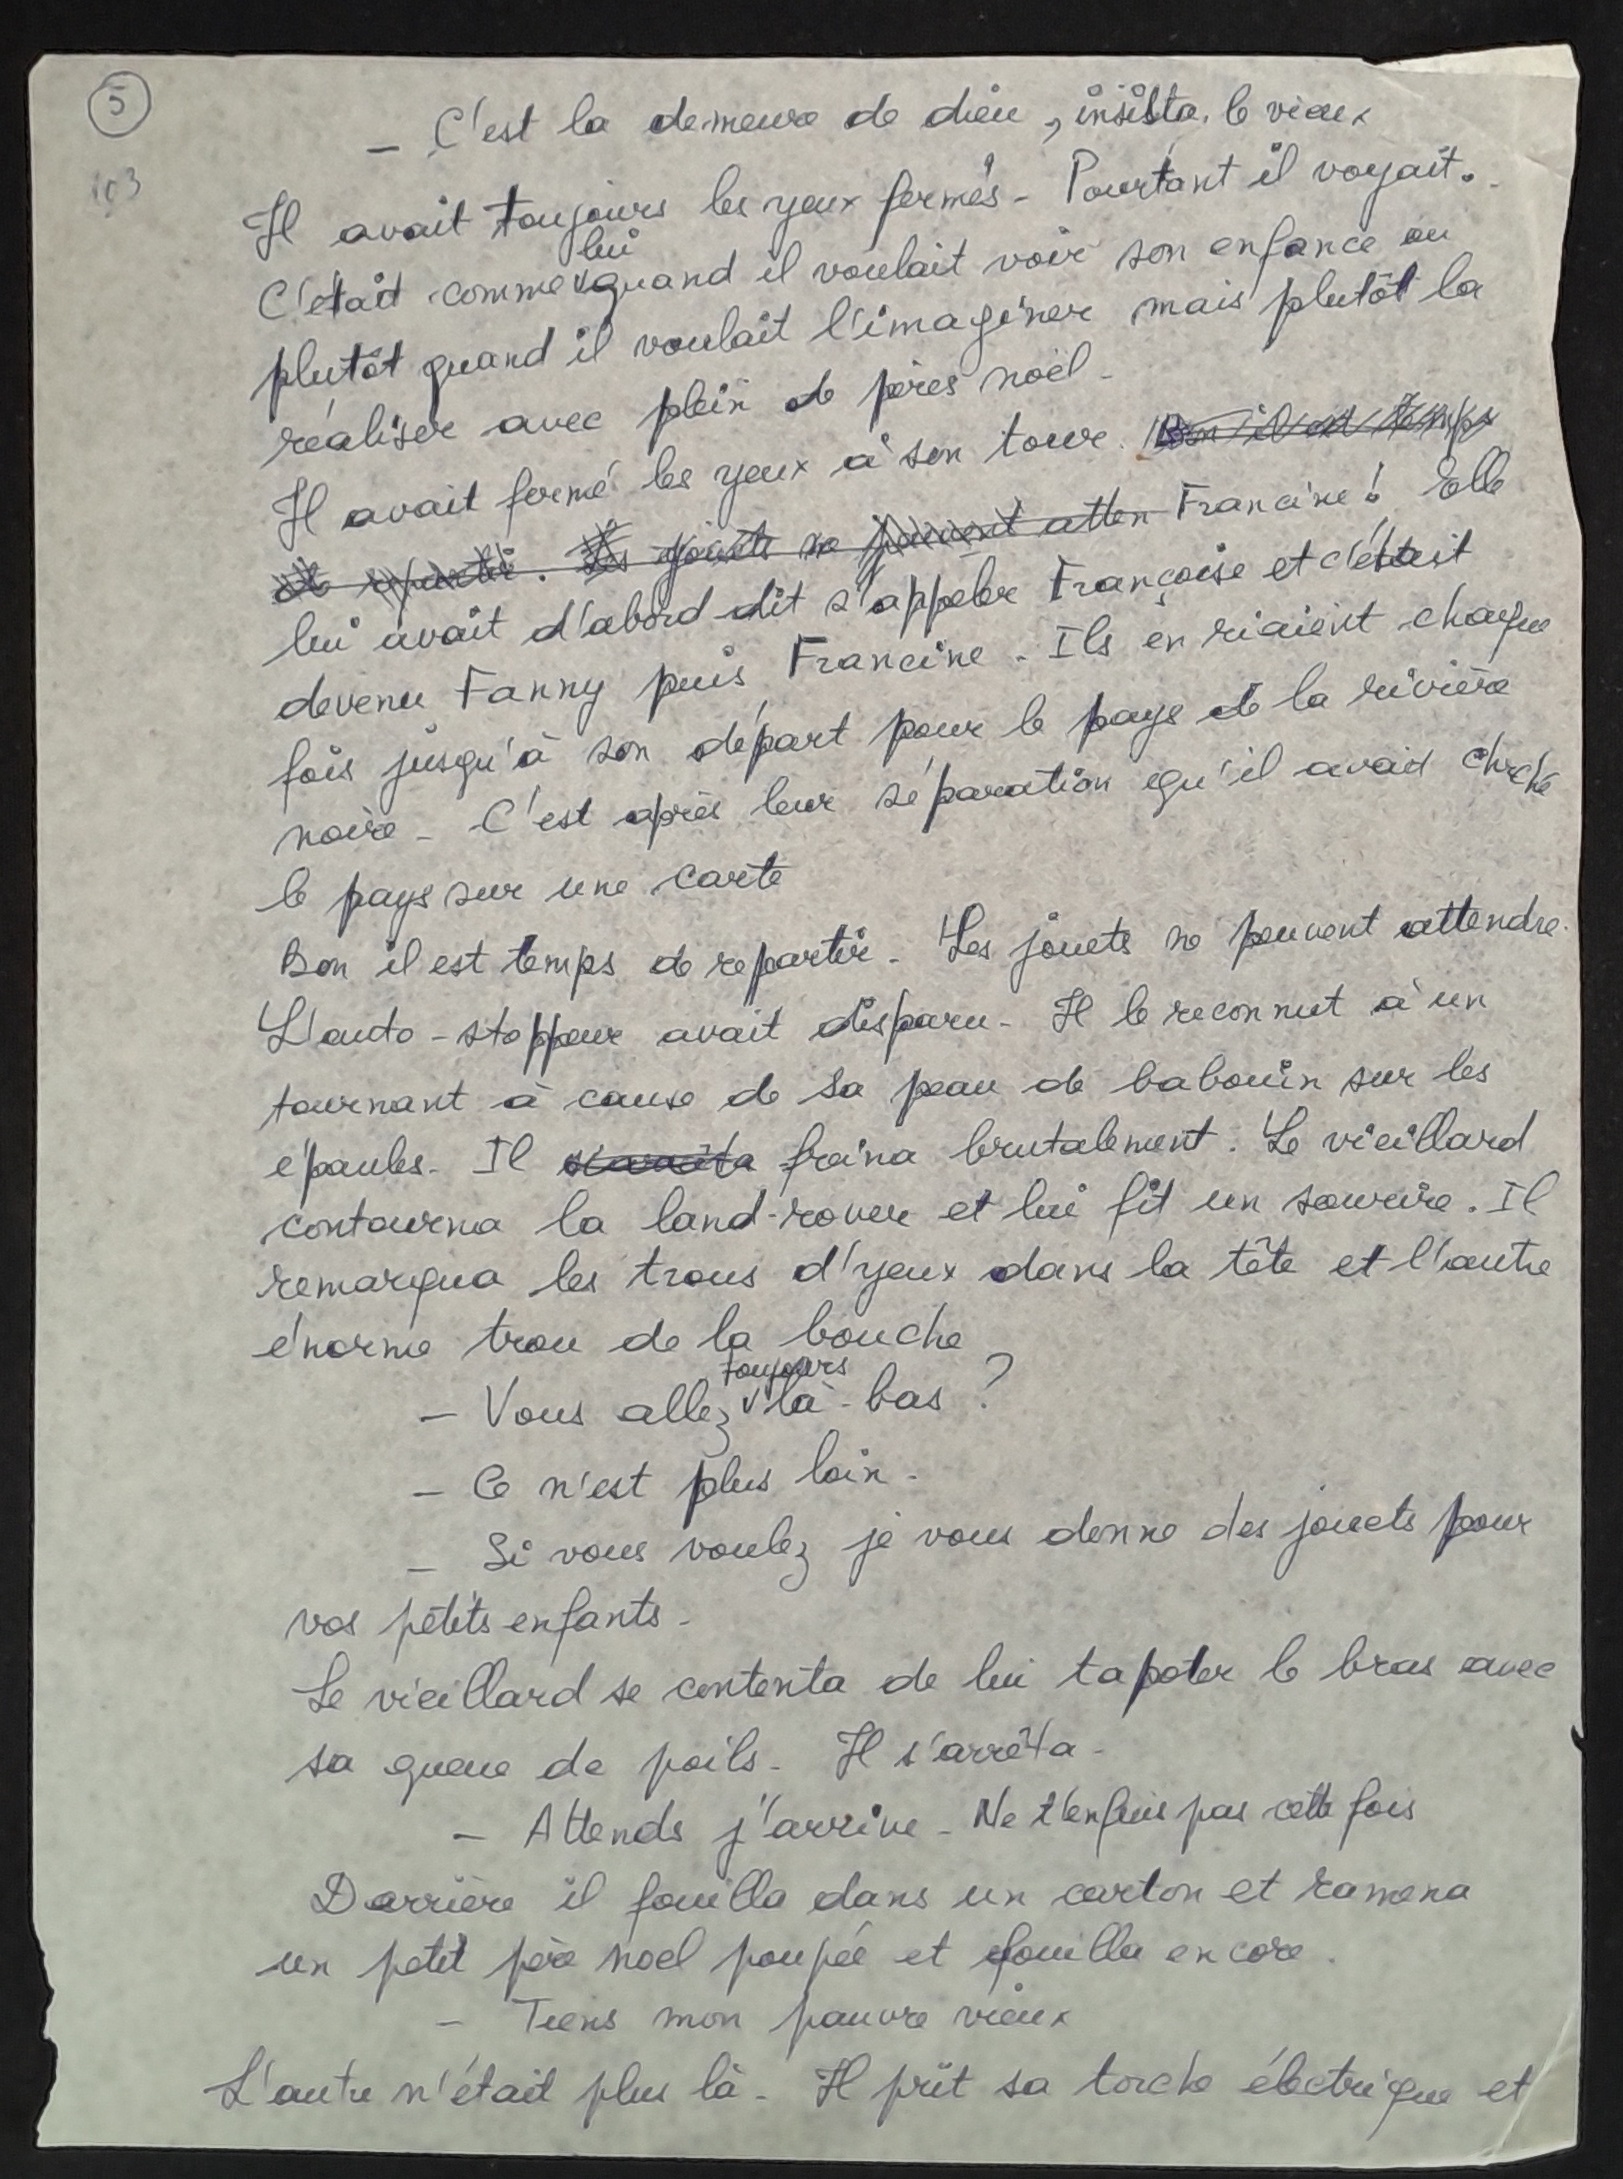 5
103
— C'est la demeure de dieu, insista le vieux
Il avait toujours les yeux fermés - Pourtant il voyait.
lui
C'était comme quand il voulait voir son enfance ou
plutôt quand il voulait l'imaginer mais plutôt la
réaliser avec plein de pères noël -
Il avait fermé les yeux à son tour. Bon il est temps
de repartir. Les jouets ne peuvent atten Francine ! Elle
lui avait d'abord dit s'appeler Françoise et c'était
devenu Fanny puis Francine. Ils en riaient chaque
fois jusqu'à son départ pour le pays de la rivière
noire - C'est après leur séparation qu'il avait cherché
le pays sur une carte
Bon il est temps de repartir - Les jouets ne peuvent attendre.
L'auto-stoppeur avait disparu - Il le reconnut à un
tournant à cause de sa peau de babouin sur les
épaules. Il s'arrêta freina brutalement. Le vieillard
contourna la land-rover et lui fit un sourire. Il
remarqua les trous d'yeux dans la tête et l'autre
énorme trou de la bouche
toujours
— Vous allez là-bas ?
— Ce n'est plus loin -
— Si vous voulez je vous donne des jouets pour
vos petits enfants -
Le vieillard se contenta de lui tapoter le bras avec
sa queue de poils - Il s'arrêta -
— Attends j'arrive - Ne t'enfuis pas cette fois
Derrière il fouilla dans un carton et ramena
un petit père noel poupée et fouilla encore.
— Tiens mon pauvre vieux
L'autre n'était plus là - Il prit sa torche électrique et